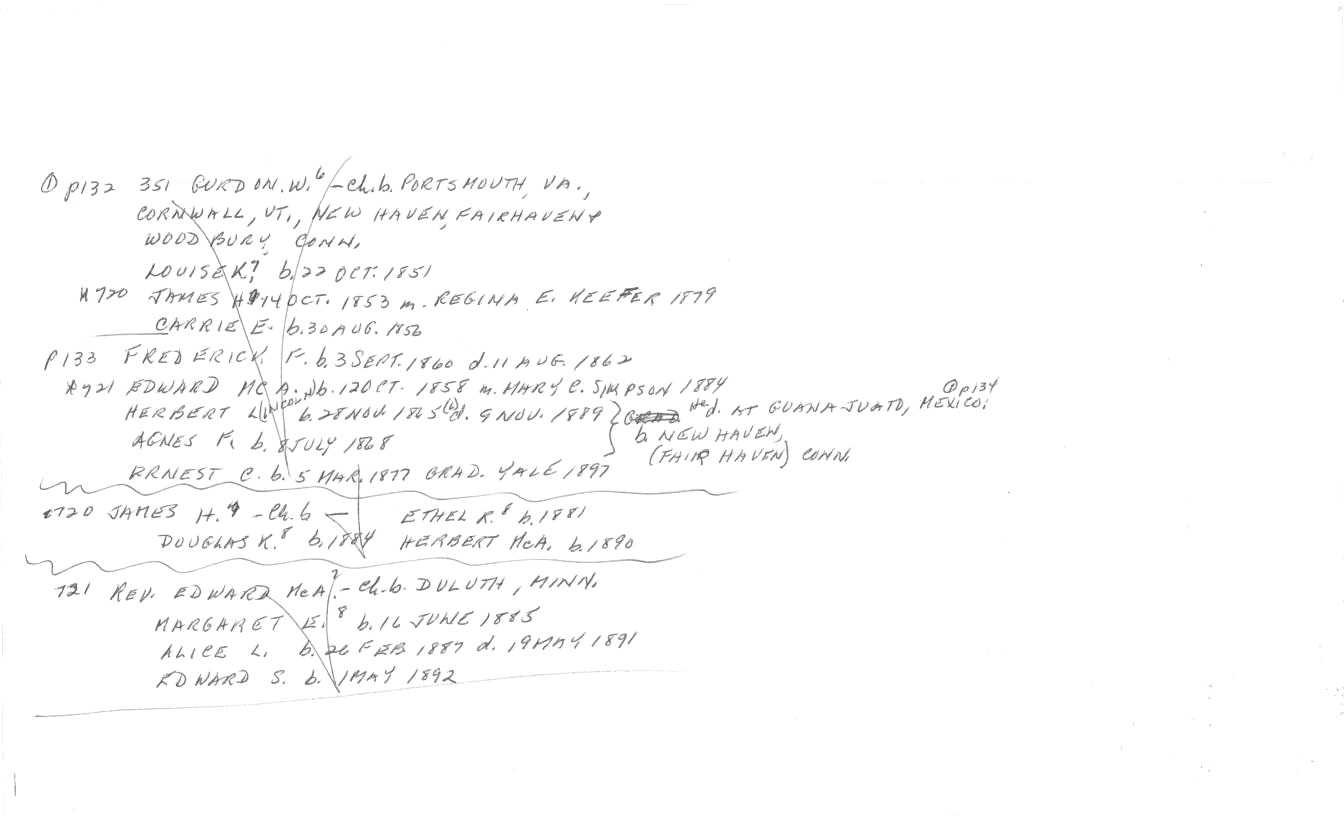 ① p132 351 GURDON. W.⁶ - ch. b. PORTSMOUTH, VA.,
CORNWALL, VT., NEW HAVEN, FAIRHAVEN &
WOODBURY, CONN.
LOUISE K.⁷ b. 22 OCT. 1851
720 JAMES H. 14 OCT. 1853 m. REGINA E. KEEFER 1879
CARRIE E. b. 30 AUG. 1856
P133 FREDERICK F. b. 3 SEPT. 1860 d. 11 AUG. 1862
721 EDWARD MCA. b. 12 OCT. 1858 m. MARY C. SIMPSON 1884
HERBERT L(INCOLN) b. 28 NOV. 1865 (6) d. 9 NOV. 1889 } He d. AT GUANAJUATO, MEXICO; ② p134
AGNES F. b. 8 JULY 1868 b. NEW HAVEN,
(FAIR HAVEN) CONN.
ERNEST C. b. 5 MAR. 1877 GRAD. YALE 1897
720 JAMES H.⁷ - ch. b — ETHEL R.⁸ b. 1881
DOUGLAS K.⁸ b. 1884 HERBERT McA. b. 1890
721 REV. EDWARD McA.⁷ - ch. b. DULUTH, MINN.
MARGARET E.⁸ b. 16 JUNE 1885
ALICE L. b. 26 FEB 1887 d. 19 MAY 1891
EDWARD S. b. 1 MAY 1892